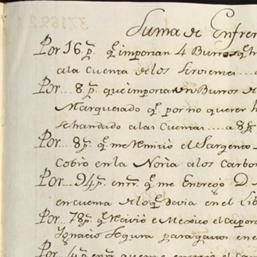 Suma de Enfren
Por 16 p.s q.e importan 4 Burros q.e h
a la Cuenta de los Sirvientes
Por .. 8 p.s que importa un Burro de
Marquesado q.e por no querer h
se han dado a las Cuentas .. a 8 p.s
Por .. 8 p.s q.e me Remitio el Sargento
Cobró en la Noria a los Carbon
Por .. 94 p.s q.e me Entregó D.
en cuenta de lo q.e devia en el lib
Por .. 78 p.s q.e Recivió de Mexico el Caporal
Ignacio Segura para gasto en e
Por .. 4 p.s